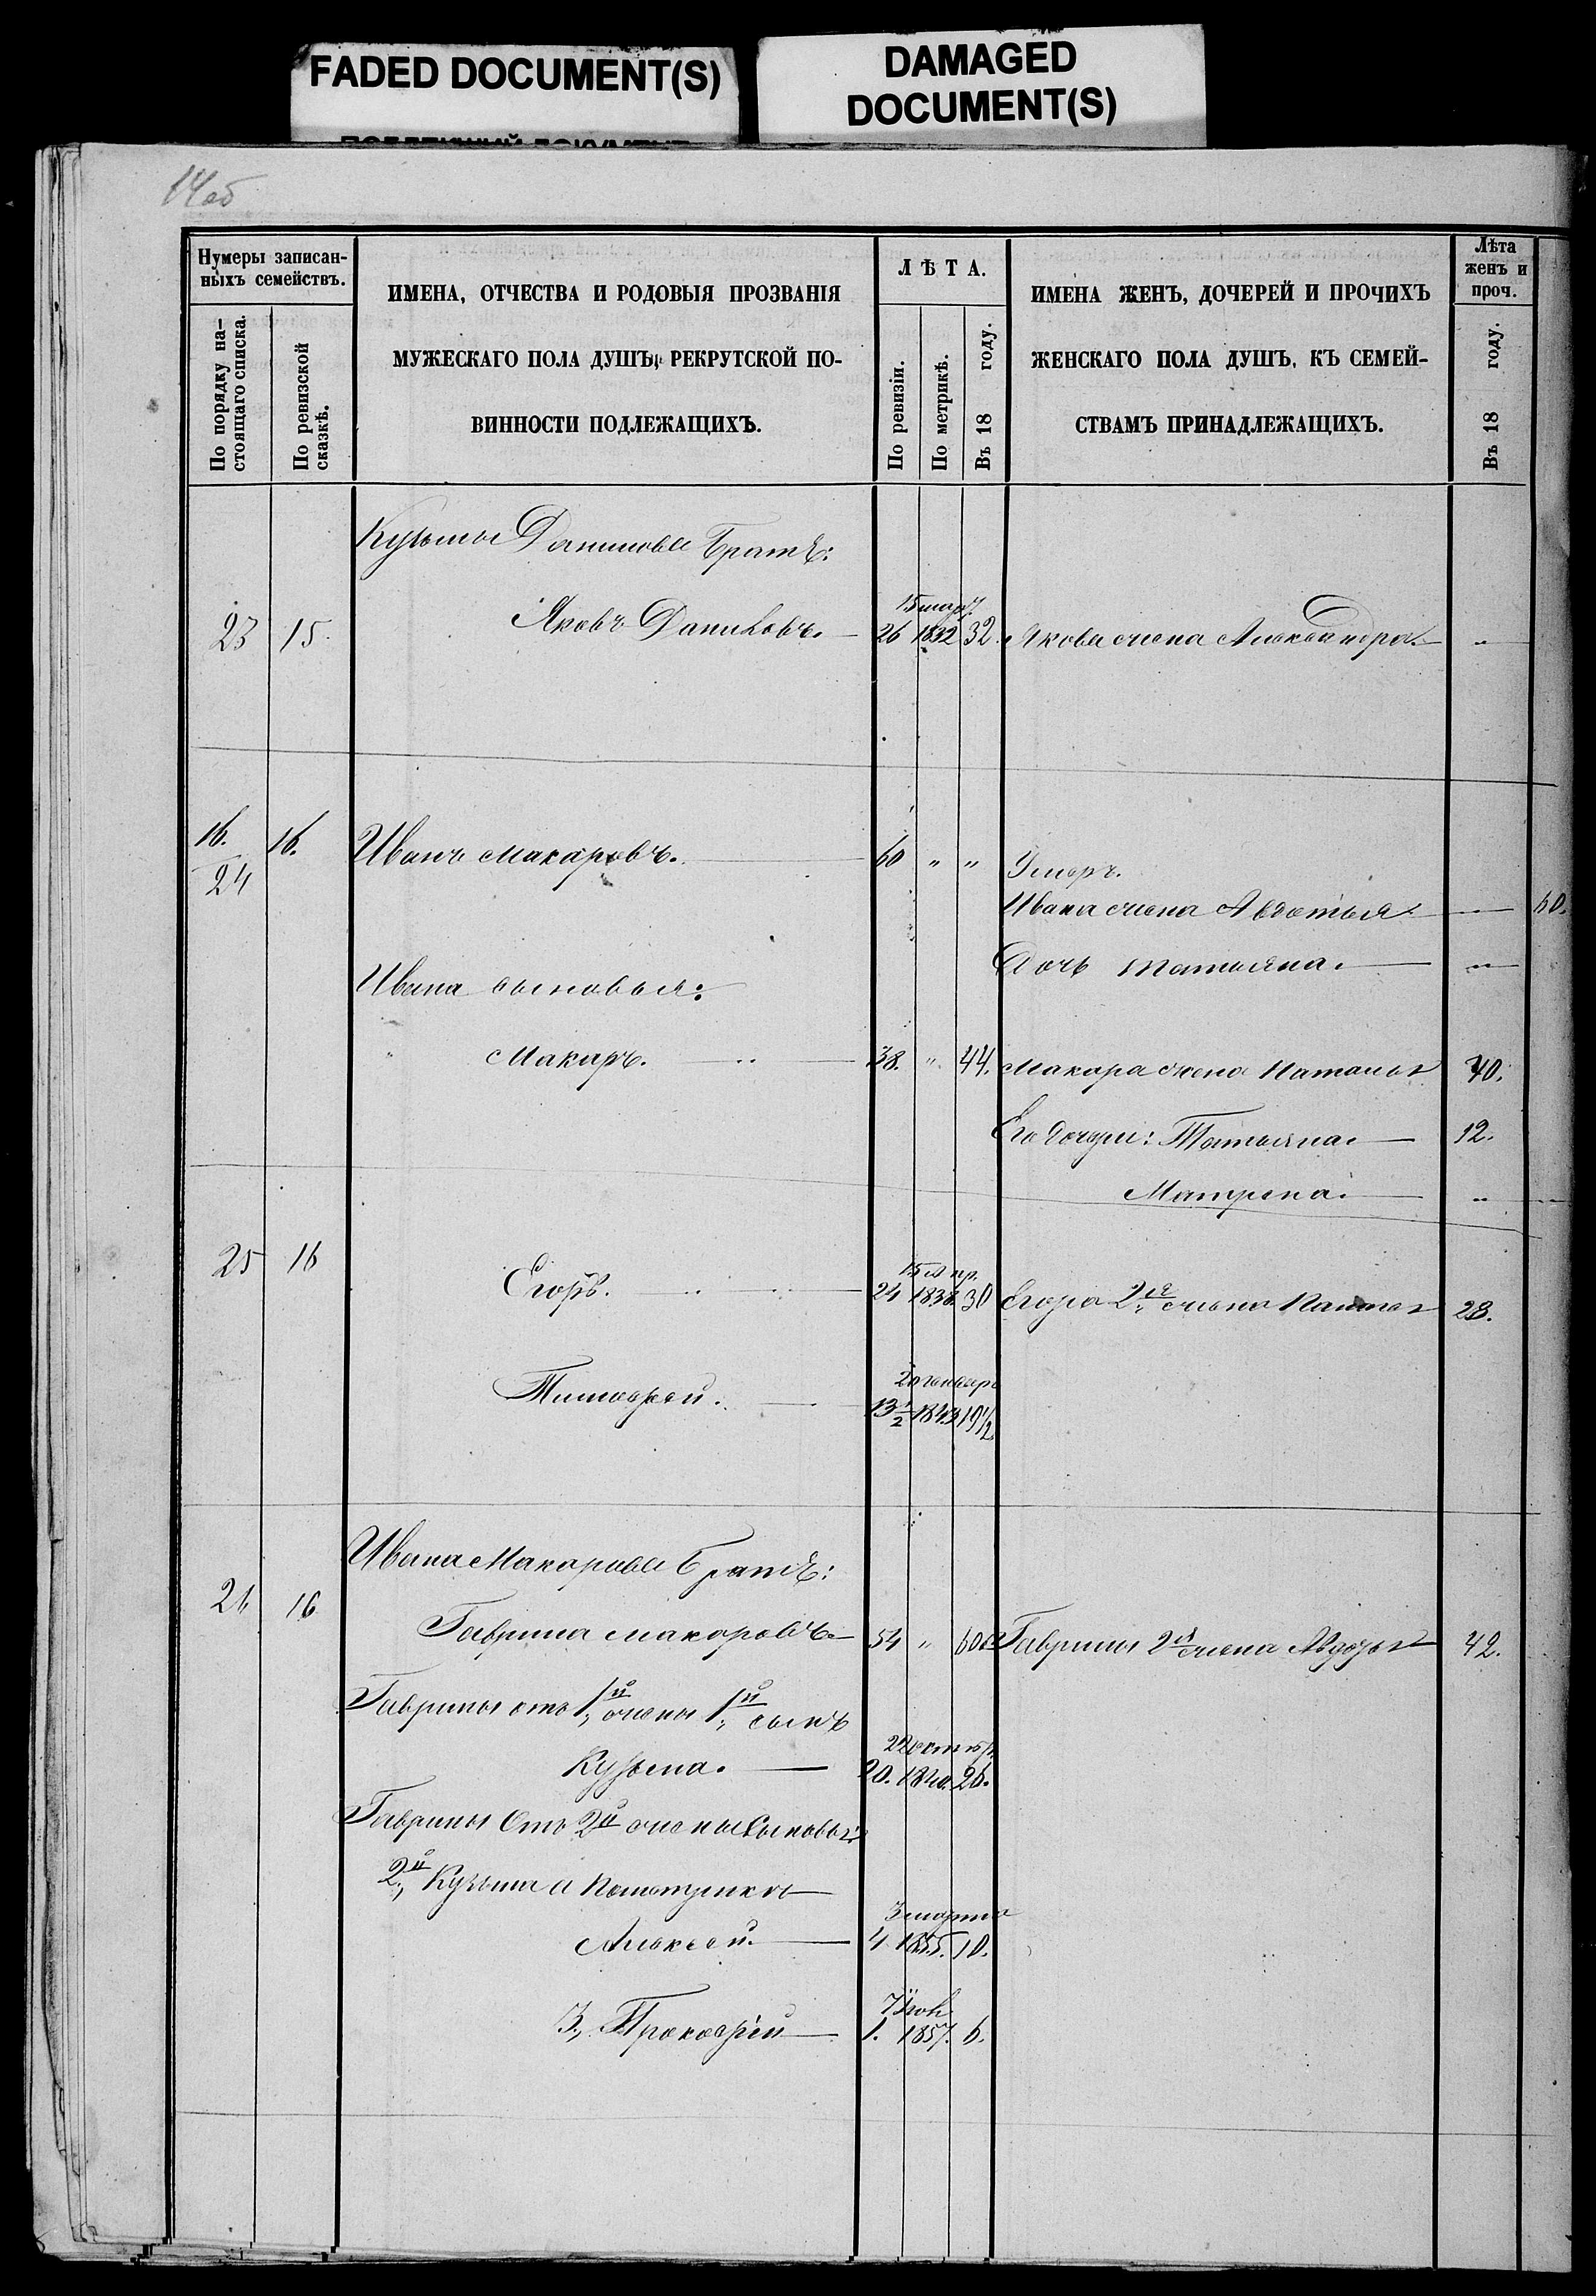 FADED DOCUMENT(S)
DAMAGED
DOCUMENT(S)
14об
Нумеры записан-
ныхъ семействъ.
По порядку на-
стоящаго списка.
По ревизской
сказкѣ.
ИМЕНА, ОТЧЕСТВА И РОДОВЫЯ ПРОЗВАНІЯ
МУЖЕСКАГО ПОЛА ДУШЪ, РЕКРУТСКОЙ ПО-
ВИННОСТИ ПОДЛЕЖАЩИХЪ.
ЛѢТА.
По ревизіи.
По метрикѣ.
Въ 18 году.
ИМЕНА ЖЕНЪ, ДОЧЕРЕЙ И ПРОЧИХЪ
ЖЕНСКАГО ПОЛА ДУШЪ, КЪ СЕМЕЙ-
СТВАМЪ ПРИНАДЛЕЖАЩИХЪ.
Лѣта
женъ и
проч.
Въ 18 году.
Кузьмы Данилова братъ:
15 мар.
23 15. Яковъ Даниловъ. 26 1832 32. Якова жена Александра. "
16. 16. Иванъ Макаровъ. 60 " " Умеръ.
24
Ивана жена Авдотья 60.
Дочь Татьяна. "
Ивана сыновья:
" Макаръ. 38. " 44. Макара жена Наталья 40.
Его дочери: Татьяна. 12.
Матрена. "
15 апр.
25 16 Егоръ. 24 1838. 30 Егора 2я жена 28.
20 генваря
Тимофей. 13½ 1843 19½
Ивана Макарова братъ:
26 16
Гаврила Макаровъ 54 " 60. Гаврилы 2я жена 42.
Гаврилы отъ 1й жены 1й сынъ
22 октяб.
Кузьма. 20. 1840. 26.
Гаврилы отъ 2й жены сыновья:
2й, Кузьма а по метрикѣ
3 марта
Алексѣй. 4 1855. 10.
7 Іюл.
3., Прокофій 1. 1857. 6.